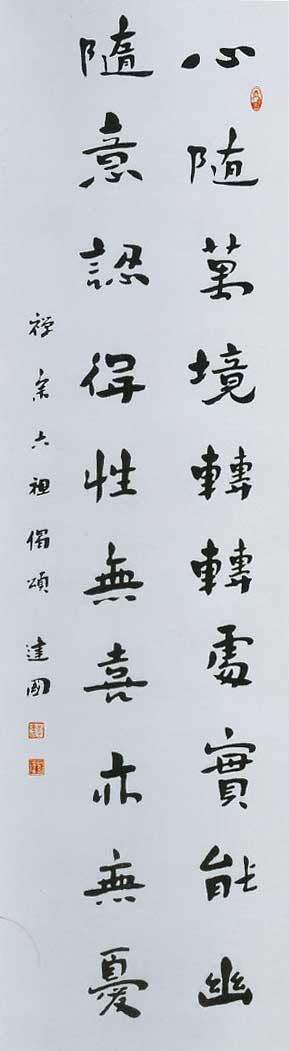 心随萬境轉轉處實能幽
隨意認得性無喜亦無憂
禅宗六祖偈頌 建國